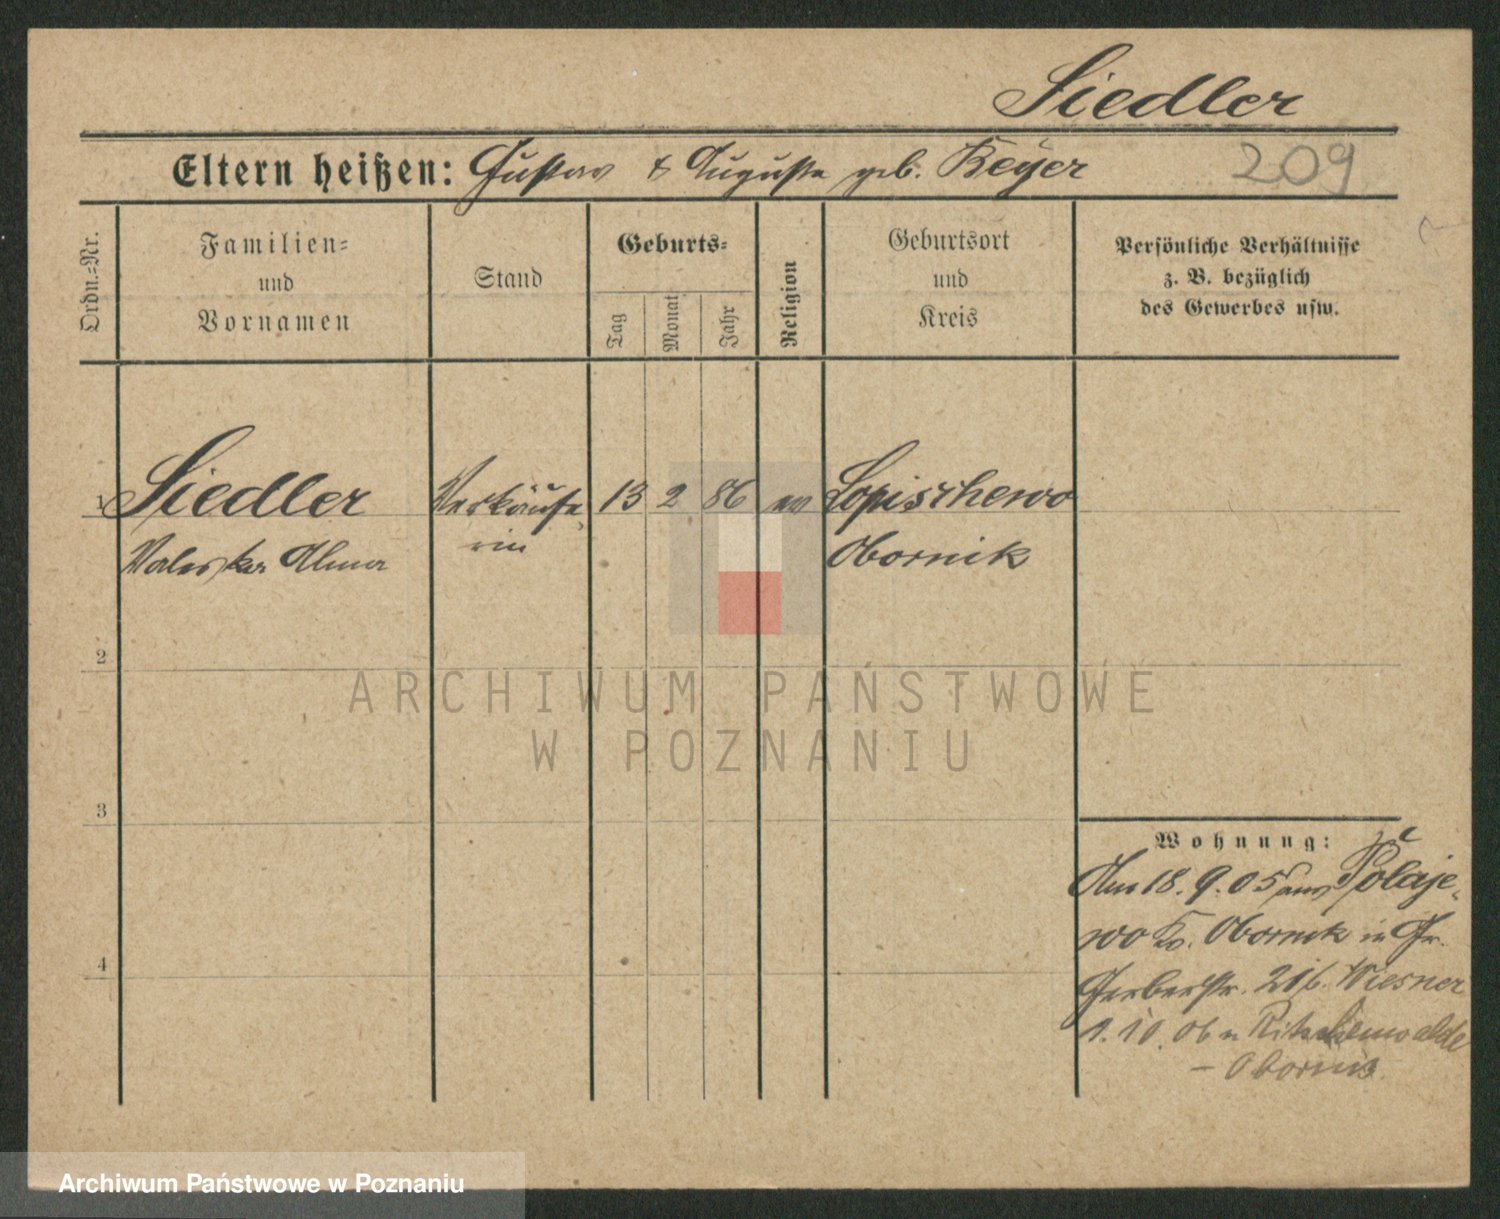 Siedler
Eltern heißen: Gustav & Auguste geb. Beyer
209
Ordn.=Nr.
Familien=
und
Vornamen
Stand
Geburts=
Tag
Monat
Jahr
Religion
Geburtsort
und
Kreis
Persönliche Verhältnisse
z. B. bezüglich
des Gewerbes usw.
1 Siedler Verkäufe- 13 2 86 ev Lopischewo
Valeska Alma rin Obornik
2
3
4
Wohnung:
Am 18.9.05 aus Polaje-
wo Kr. Obornik in Gr.
Gerberstr. 21 b. Wiesner
1.10.06 n Ritschenwalde
- Obornik
ARCHIWUM PAŃSTWOWE
W POZNANIU
Archiwum Państwowe w Poznaniu